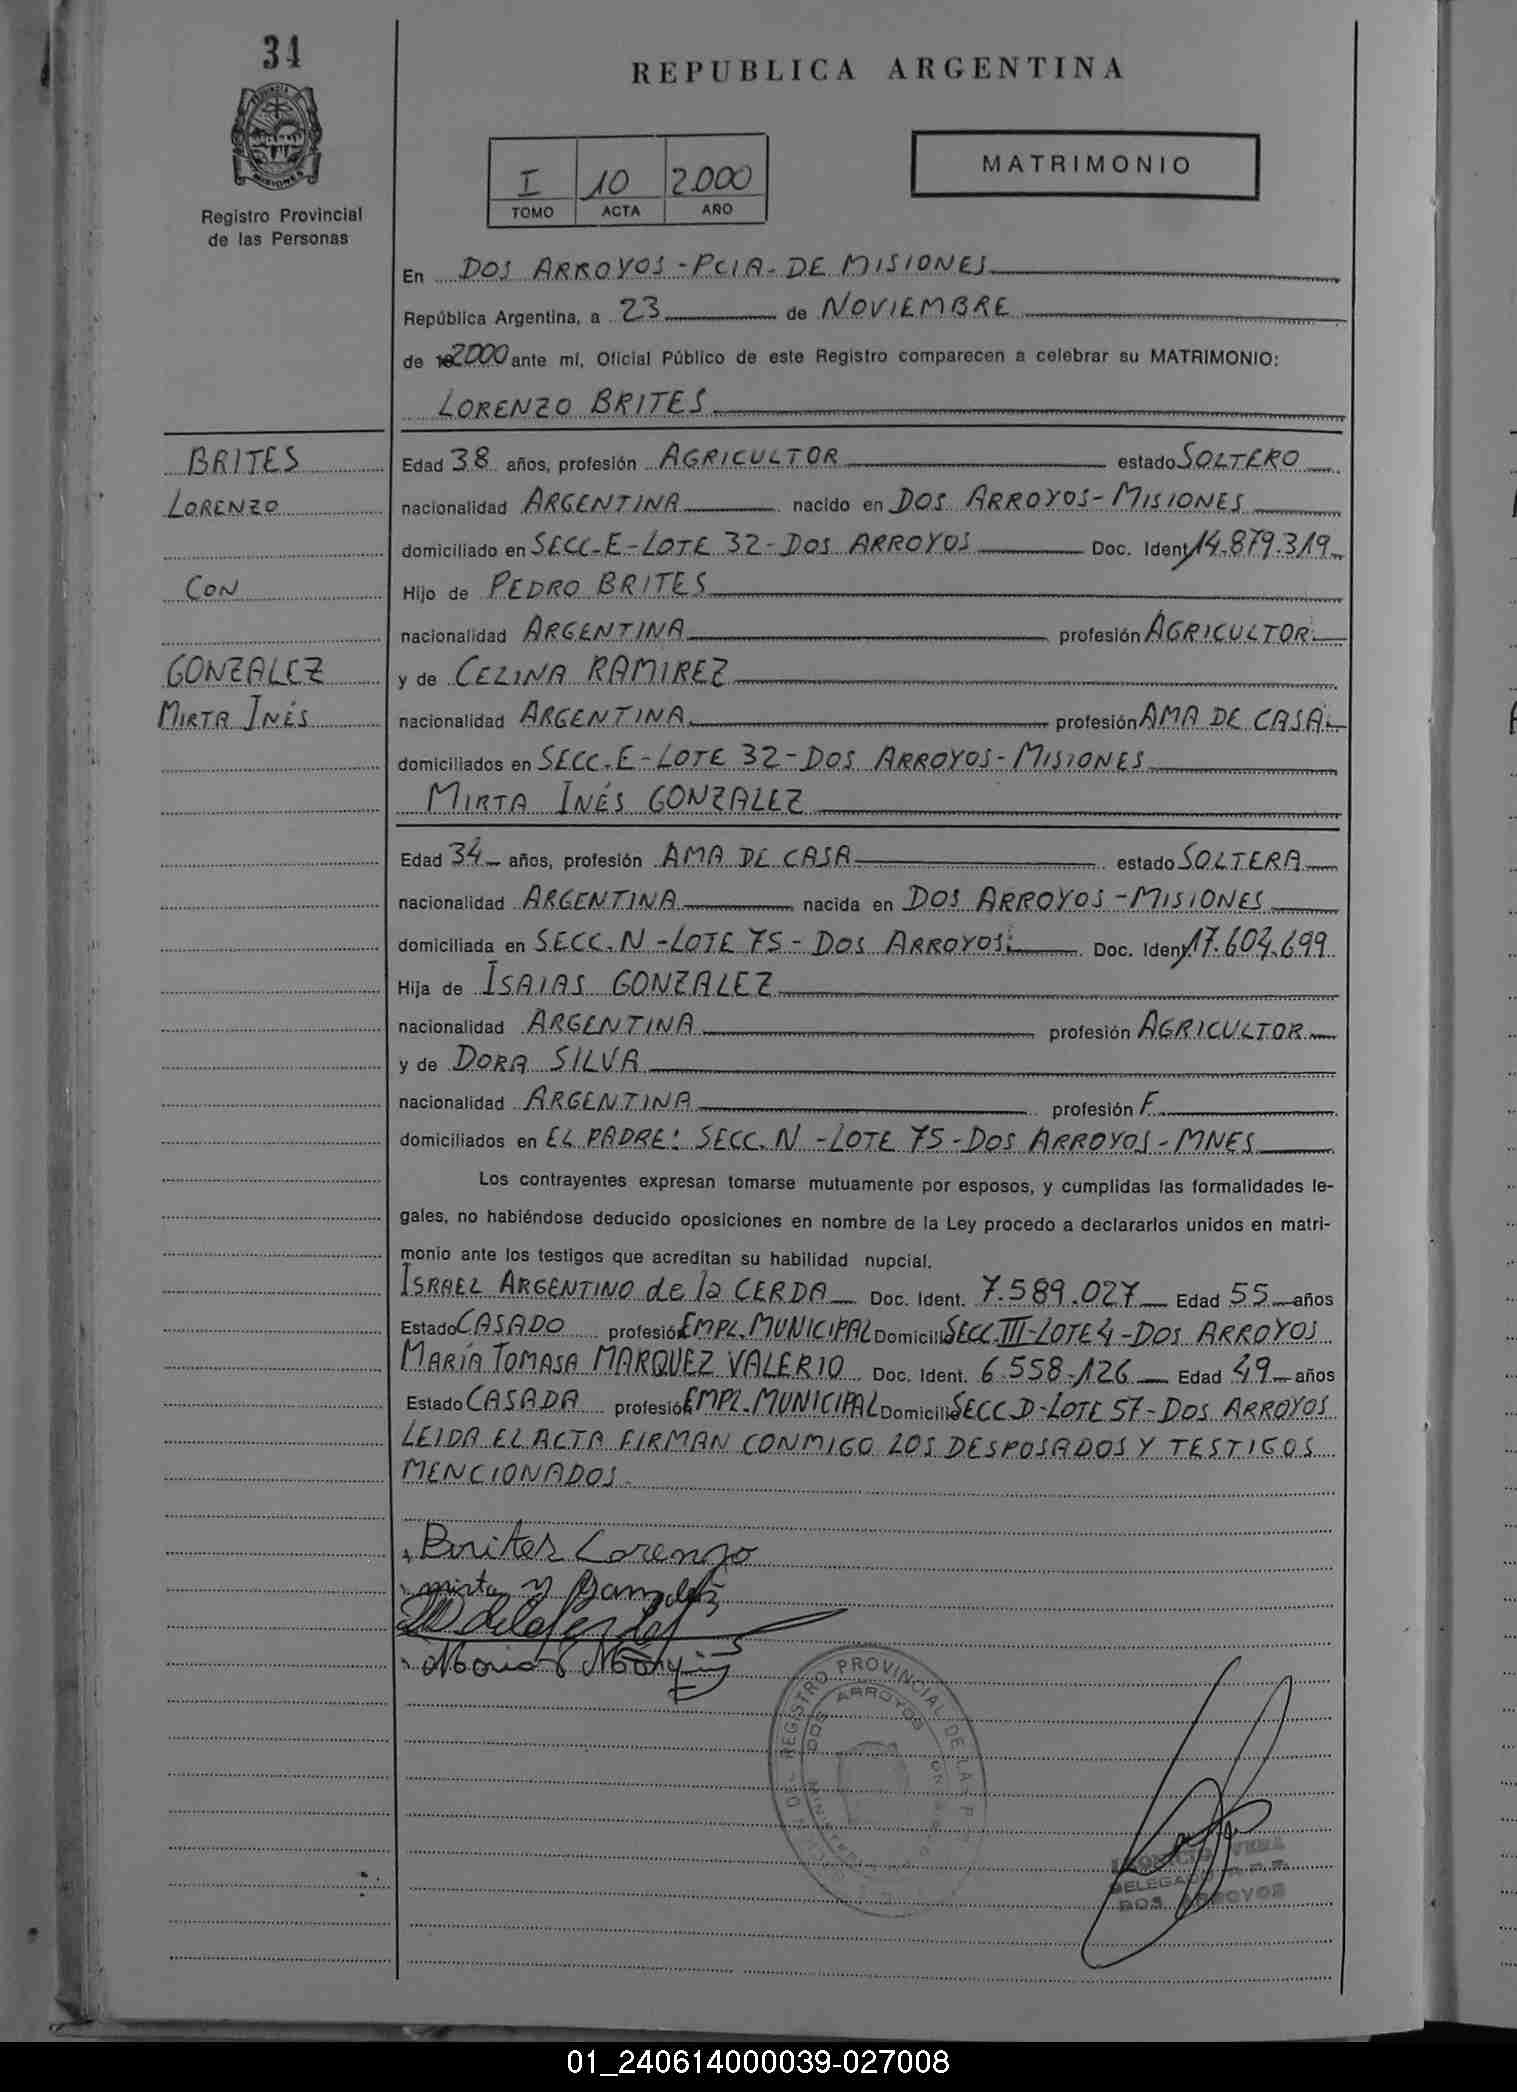 34
REPUBLICA ARGENTINA
PROVINCIA
MISIONES
Registro Provincial
de las Personas
I 10 2000
TOMO ACTA AÑO
MATRIMONIO
En DOS ARROYOS - PCIA. DE MISIONES
República Argentina, a 23 de NOVIEMBRE
de 2000 ante mí, Oficial Público de este Registro comparecen a celebrar su MATRIMONIO:
LORENZO BRITES
BRITES
LORENZO
CON
GONZALEZ
MIRTA INÉS
Edad 38 años, profesión AGRICULTOR estado SOLTERO
nacionalidad ARGENTINA nacido en DOS ARROYOS - MISIONES
domiciliado en SECC-E-LOTE 32-DOS ARROYOS Doc. Ident. 14.879.319
Hijo de PEDRO BRITES
nacionalidad ARGENTINA profesión AGRICULTOR
y de CELINA RAMIREZ
nacionalidad ARGENTINA profesión AMA DE CASA
domiciliados en SECC-E-LOTE 32-DOS ARROYOS-MISIONES
MIRTA INÉS GONZALEZ
Edad 34 años, profesión AMA DE CASA estado SOLTERA
nacionalidad ARGENTINA nacida en DOS ARROYOS - MISIONES
domiciliada en SECC. N - LOTE 75 - DOS ARROYOS Doc. Ident. 17.604.699
Hija de ISAIAS GONZALEZ
nacionalidad ARGENTINA profesión AGRICULTOR
y de DORA SILVA
nacionalidad ARGENTINA profesión F.
domiciliados en EL PADRE: SECC. N - LOTE 75-DOS ARROYOS-MNES
Los contrayentes expresan tomarse mutuamente por esposos, y cumplidas las formalidades le-
gales, no habiéndose deducido oposiciones en nombre de la Ley procedo a declararlos unidos en matri-
monio ante los testigos que acreditan su habilidad nupcial.
ISRAEL ARGENTINO de la CERDA Doc. Ident. 7.589.027 Edad 55 años
Estado CASADO profesión EMPL. MUNICIPAL Domicilio SECC. III-LOTE 4-DOS ARROYOS
MARÍA TOMASA MARQUEZ VALERIO Doc. Ident. 6.558.126 Edad 49 años
Estado CASADA profesión EMPL. MUNICIPAL Domicilio SECC D-LOTE 57-DOS ARROYOS
LEIDA EL ACTA FIRMAN CONMIGO LOS DESPOSADOS Y TESTIGOS
MENCIONADOS.
Brites Lorenzo
mirta y Gonzalez
REGISTRO PROVINCIAL DE LAS
DOS ARROYOS
VERA
DELEGADO R.P.P.
DOS ARROYOS
01_240614000039-027008